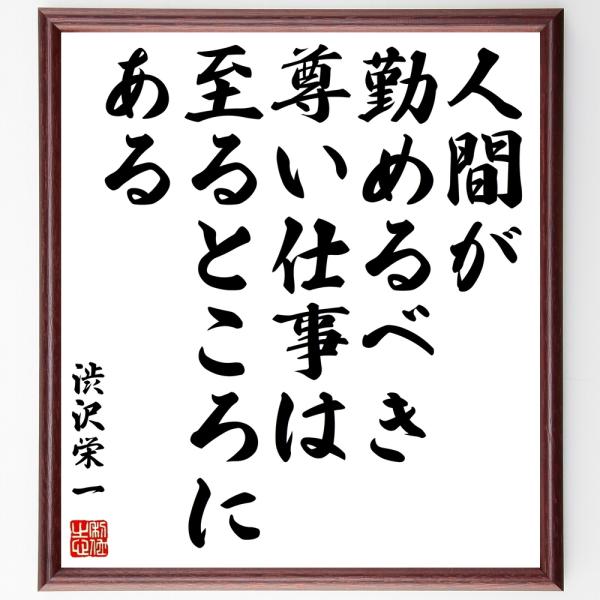 人間が
勤めるべき
尊い仕事は
至るところに
ある
渋沢栄一